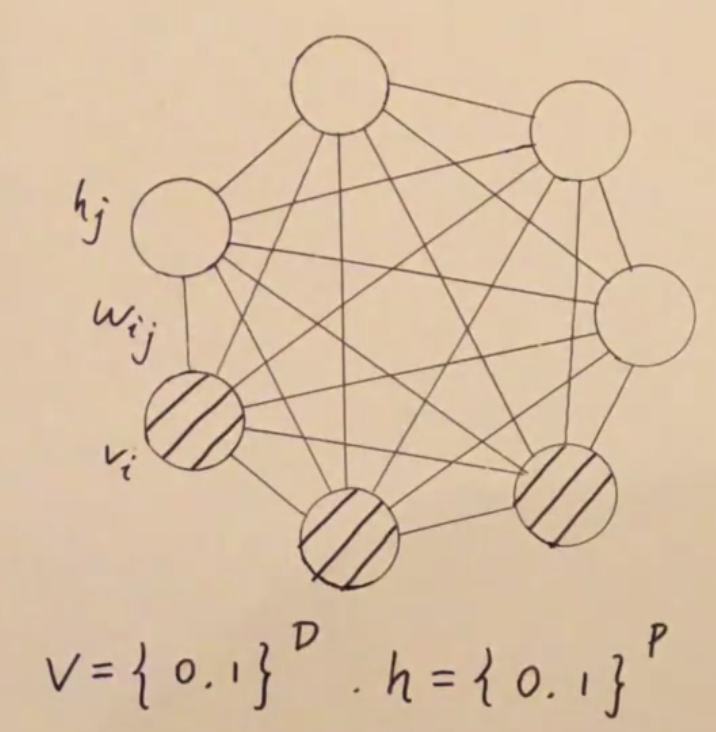 hj
wij
vi
V={0.1}^D . h={0.1}^P